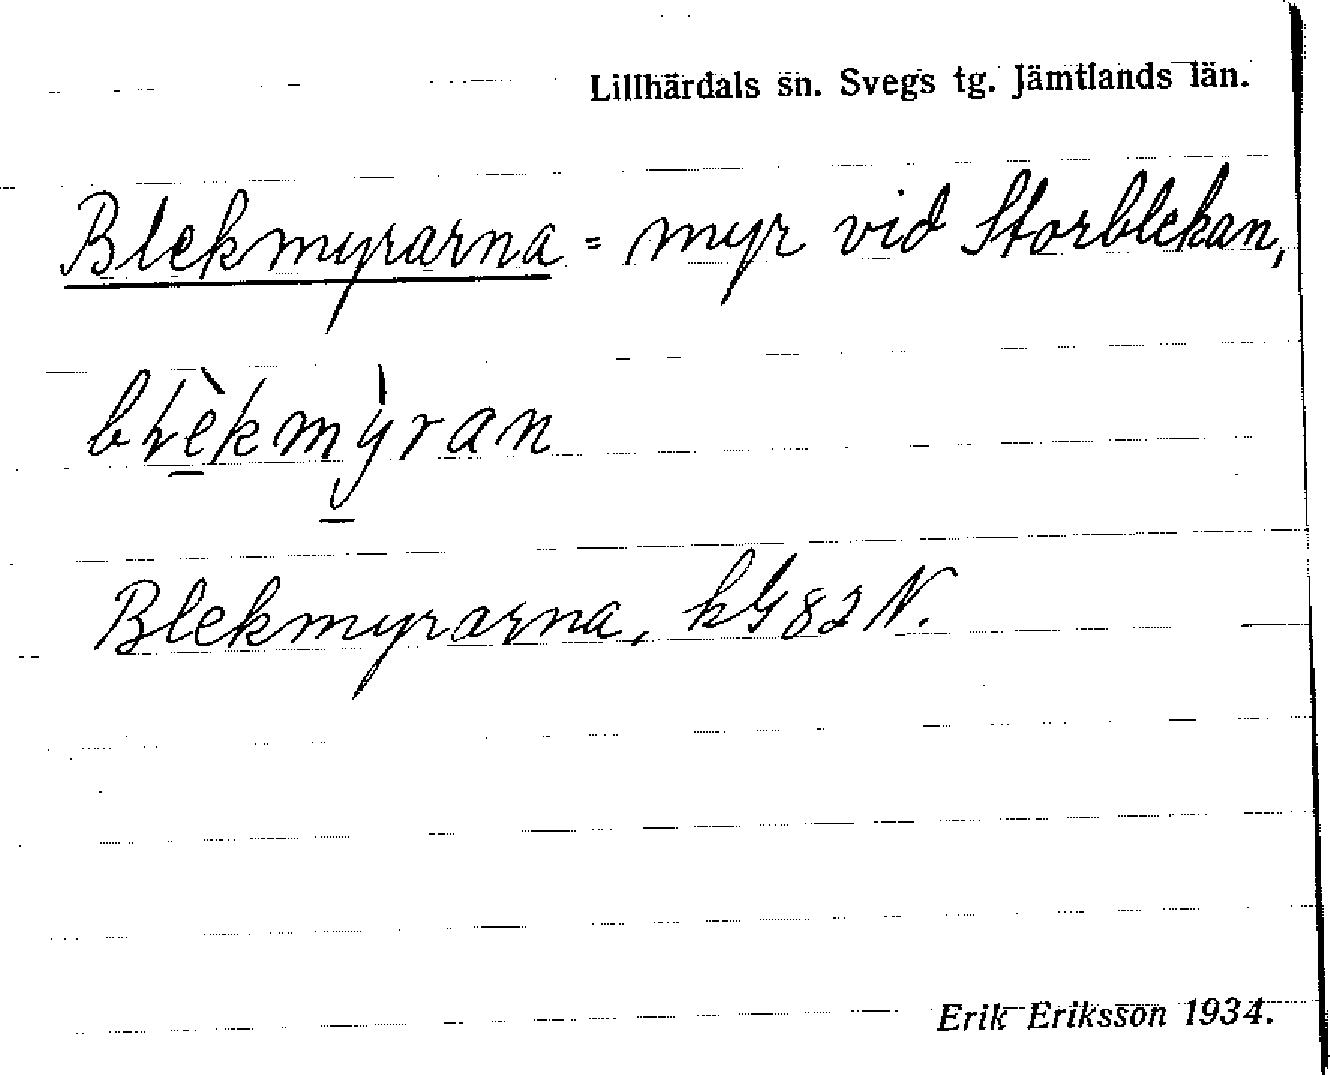 Lillhärdals sn. Svegs tg. Jämtlands län.
Blekmyrarna = myr vid Storblekan,
Blekmyrarna, kG 82 N.
Erik Eriksson 1934.